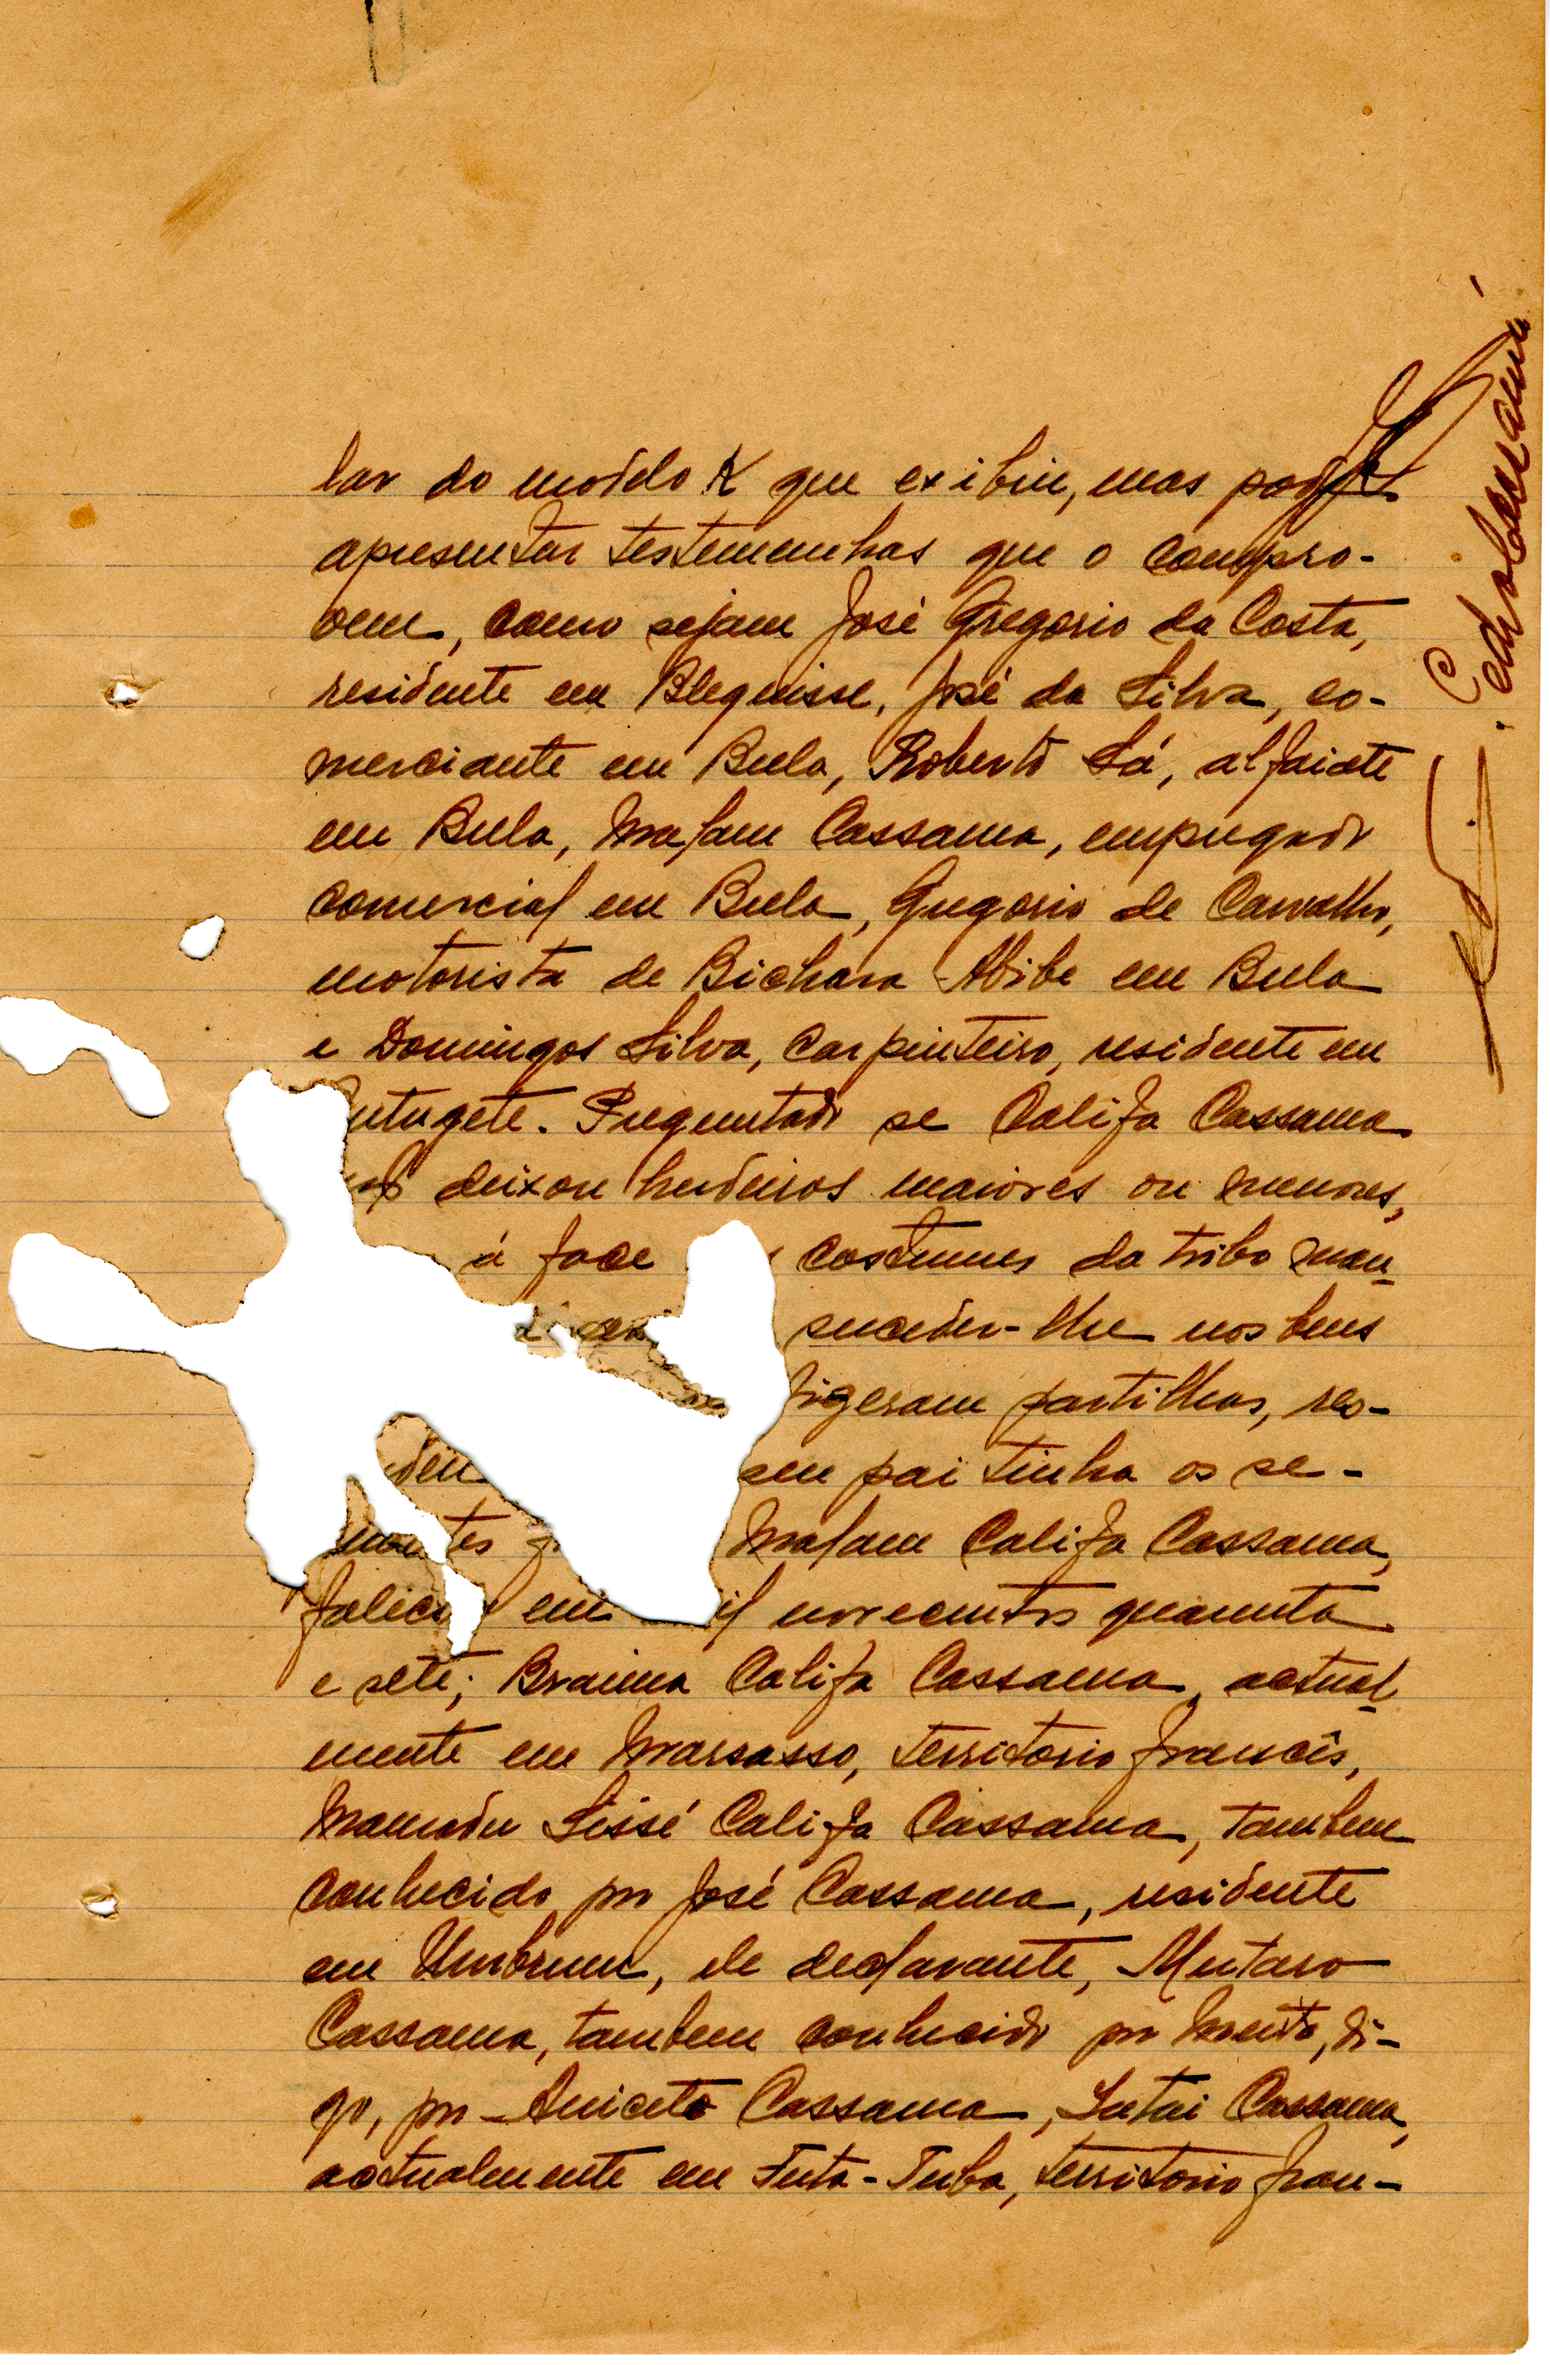 lar do modelo K que exibiu, mas pode
apresentar testemunhas que o compro-
vem, como sejam José Gregorio da Costa,
residente em Blequisse, José da Silva, co-
merciante em Bula, Roberto Sá, alfaiate
em Bula, Mafam Cassama, empregado
comercial em Bula, Gregorio de Carvalho,
motorista de Bichara Abibe em Bula
e Domingos Silva, carpinteiro, residente em
utugete. Preguntado se Califa Cassama
deixou herdeiros maiores ou menores,
á face costumes da tribo man-
suceder-lhe nos bens
fizeram partilhas, res-
deu seu pai tinha os se-
tes Mafam Califa Cassama,
falecido em mil novecentos quarenta
e sete; Braima Califa Cassama, actual-
mente em Marsasso, territorio francês,
Mamadu Sissé Califa Cassama, tambem
conhecido por José Cassama, residente
em , ele declarante, Mutaro
Cassama, tambem conhecido por , di-
go, por Aniceto Cassama, Cassama,
actualmente em Futa-Tuba, territorio fran-